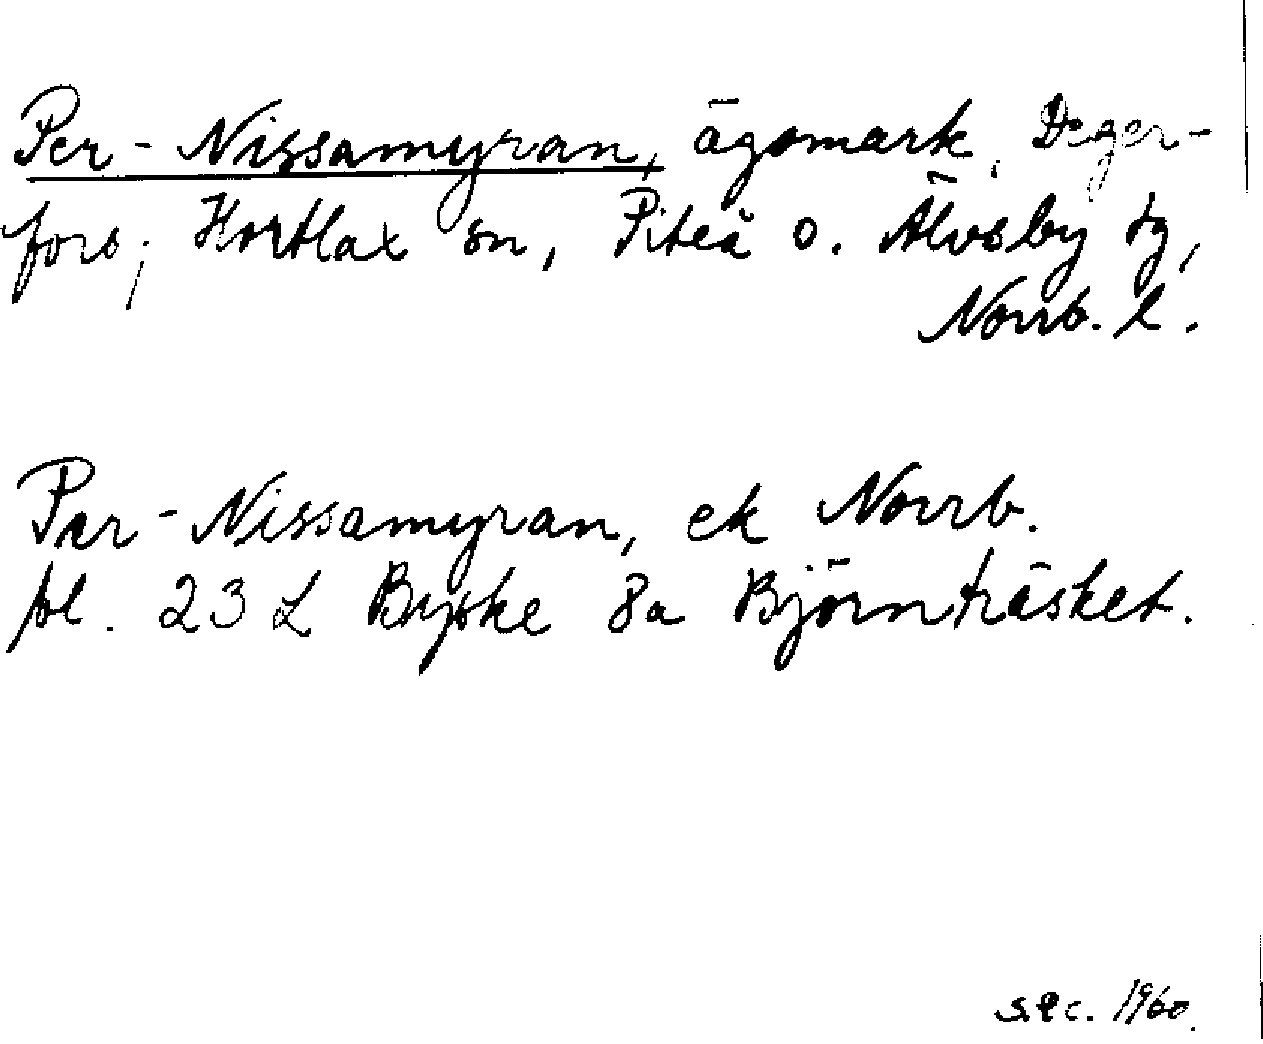 Per-Nissamyran, ägomark, Deger-
fors, Hortlax sn, Piteå o. Älvsby tg,
Norrb. l.
Per-Nissamyran, ek Norrb.
bl. 23 L Byske 8a Björnträsket.
sec. 1960.